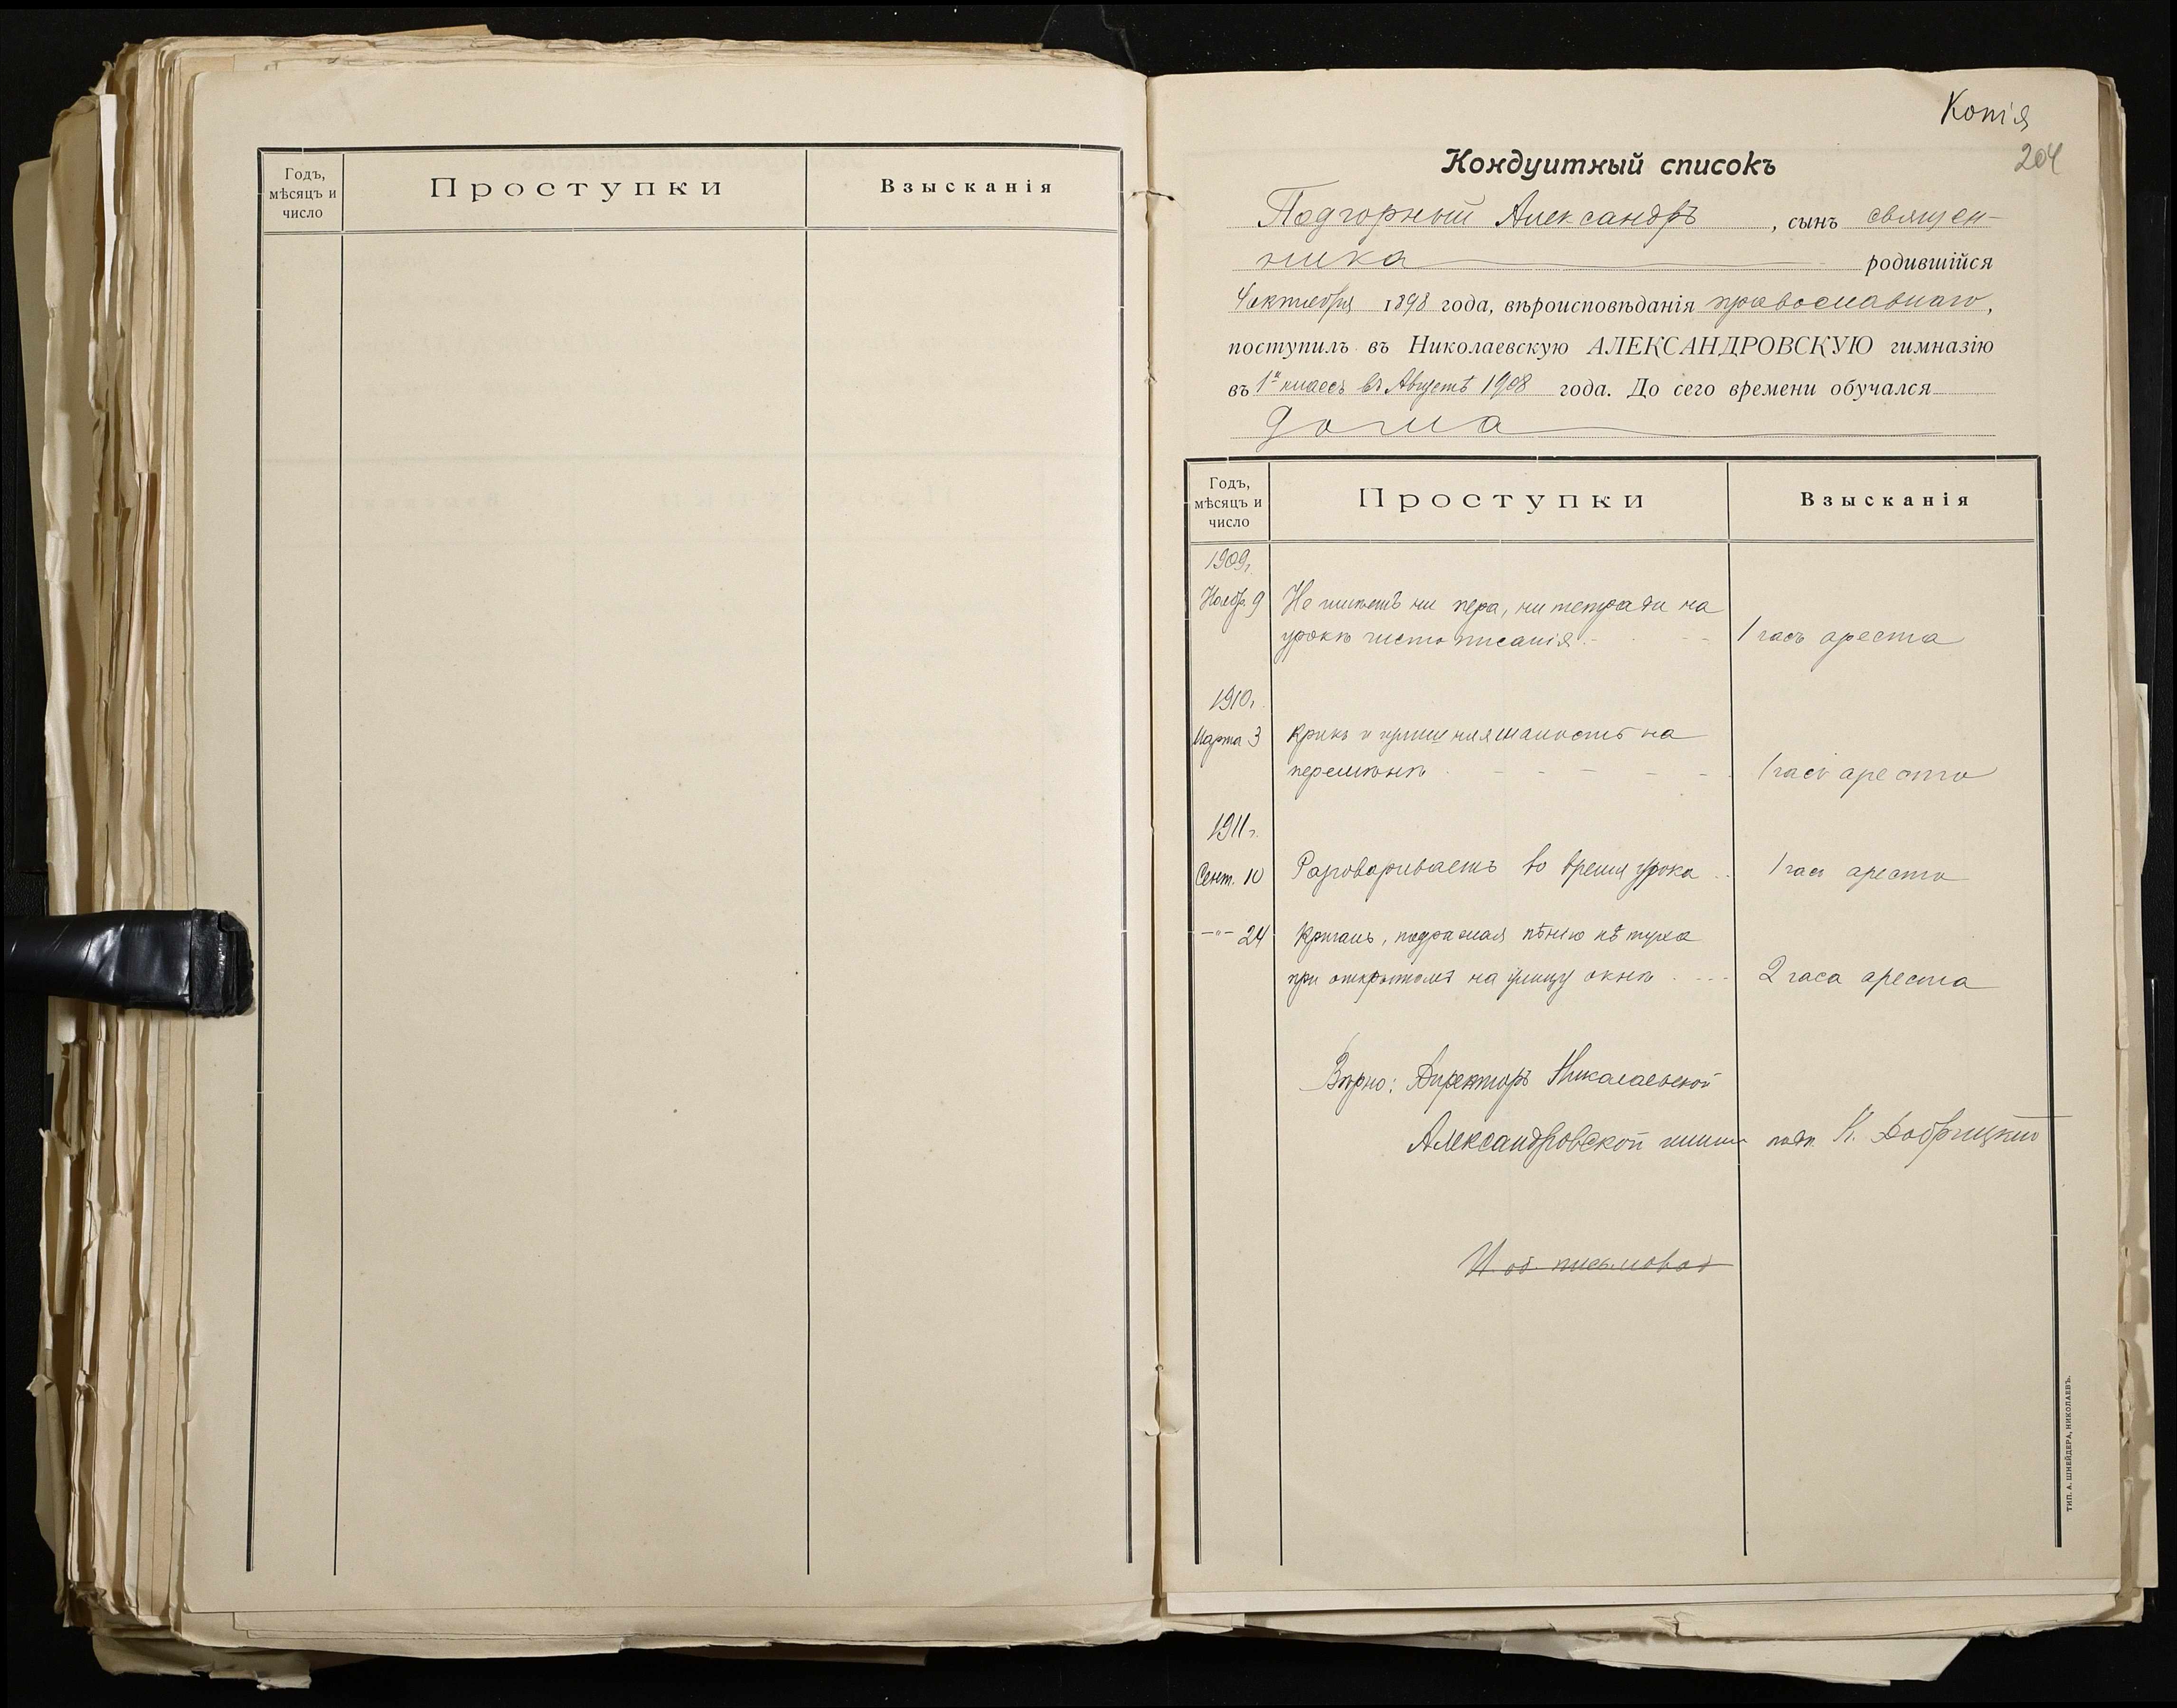 Годъ,
мѣсяцъ и
число
Проступки
Взысканія
Копія
204
Кондуитный списокъ
Подгорный Александръ, сынъ священ-
ника родившійся
4 октября 1898 года, вѣроисповѣданія православнаго,
поступилъ въ Николаевскую АЛЕКСАНДРОВСКУЮ гимназію
въ 1й классъ въ Августѣ 1908 года. До сего времени обучался
дома
Годъ,
мѣсяцъ и
число
Проступки
Взысканія
1909г.
Ноябр. 9 Не имѣетъ ни пера, ни тетради на
урокѣ чистописанія. 1 часъ ареста
1910г.
Марта 3 Крикъ и шалость на
перемѣнѣ 1 часъ ареста
1911г.
Сент. 10 Разговариваетъ во время урока 1 часъ ареста
-"- 24 Кричалъ, подражая пѣнію пѣтуха
при открытомъ на улицу окнѣ 2 часа ареста
Вѣрно: Директоръ Николаевской
Александровской гимн. подп. К. Добрицкій
И. об. письмовод
ТИП. А. ШНЕЙДЕРА, НИКОЛАЕВЪ.